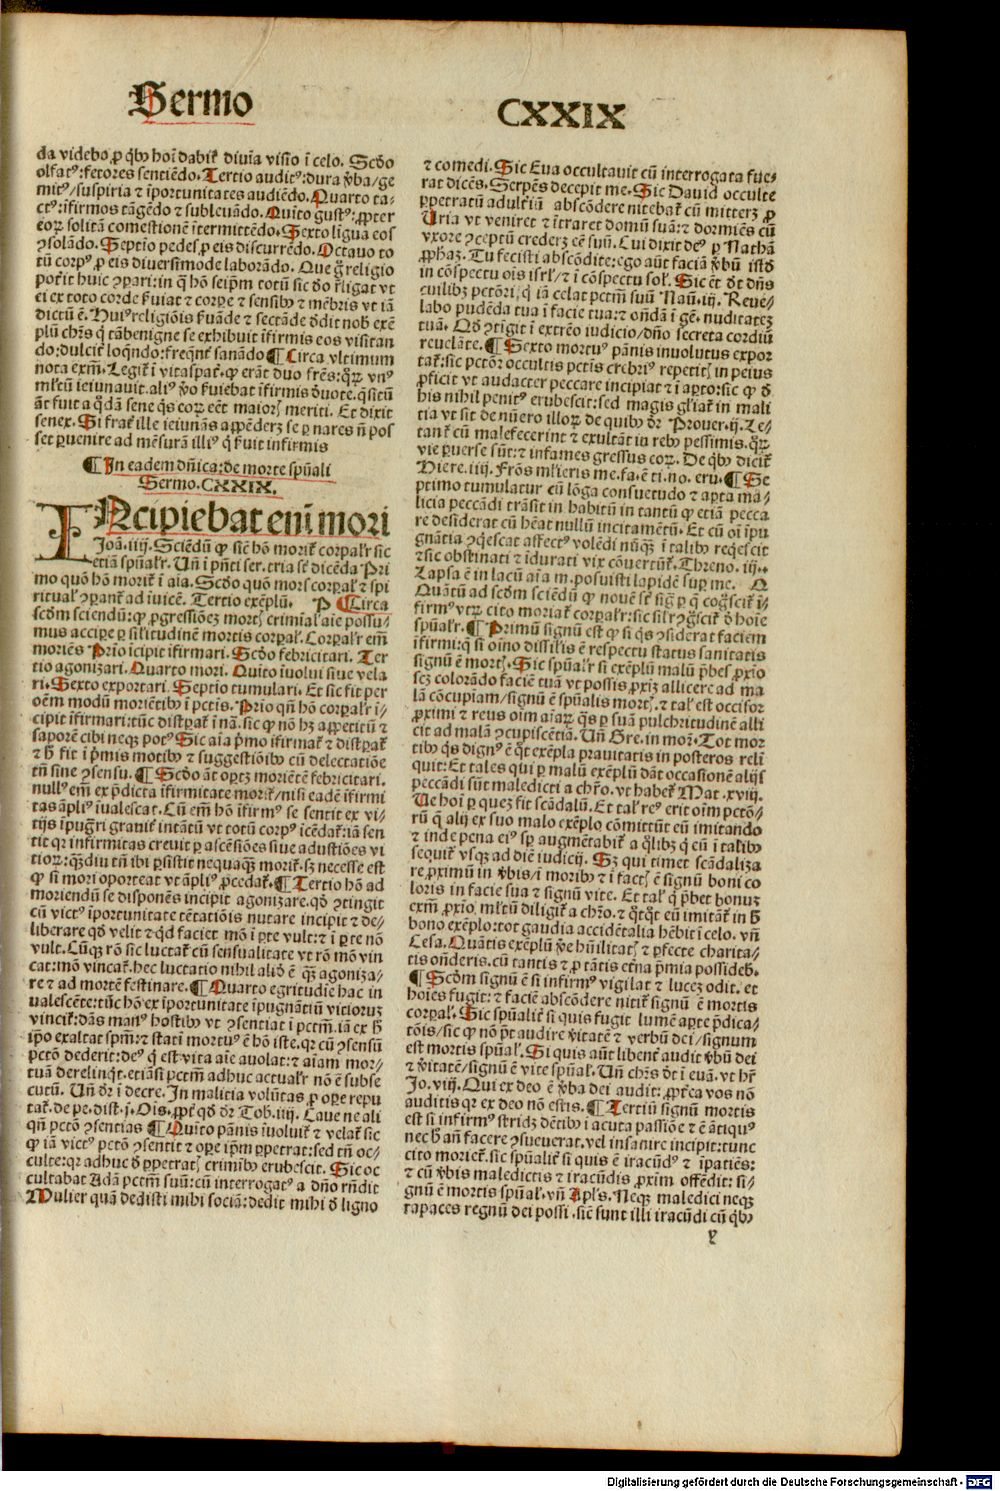 Sermo
CXXIX
da videbo, ꝓ qͥbꝰ hoī dabit̃ diuīa visio ī celo. Scd̕o
olfatꝰ: fetores sentiēdo. Tertio auditꝰ: dura v̕ba/ ge
mitꝰ/ suspiria ⁊ īportunitates audiēdo. Quarto ta⸗
ctꝰ: īfirmos tāgēdo ⁊ subleuādo. Quīto gustꝰ: ꝓpter
eoꝝ solitā comestionē ītermittēdo. Sexto līgua eos
ꝯsolādo. Septīo pedes ꝓ eis discurrēdo. Octauo to
tū corpꝰ ꝓ eis diuersimode laborādo. Que g̃ religio
pot̃it huic ꝯpari: in q̄ hō seip̄m totū sic d̕o r̄ligat vt
ei ex toto corde ſ̕uiat ⁊ corꝑe ⁊ sensibꝰ ⁊ mēbris vt iā
dictū ē. Huiꝰ religiōis ſ̕uāde ⁊ sectāde d̕dit nob̄ exē
plū chr̄s q̇ tā benigne se exhibuit īfirmis eos visitan
do: dulcit̃ loqn̄do: freqn̄t̃ sanādo ¶ Circa vltimum
nota exm̄. Legit̃ ī vitaspat̃. ꝙ erāt duo fr̄es: qꝝ vnꝰ
ml̕tū ieiunauit. aliꝰ v̕o ſ̕uiebat īfirmis d̕uote. q̄situ
āt fuit a q̇dā sene qͥs eoꝝ eēt maioris meriti. Et dixit
senex. Si frat̃ ille ieiunās appēderꝫ se ꝑ nares nō pos
set ꝑuenire ad mēsurā illiꝰ q̇ fuit infirmis
¶ In eadem dn̄ica: de morte spūali
Sermo. CXXIX.
INcipiebat enī mori
Joā. iiij. Sciēdū ꝙ sic̄ hō morit̃ corꝑalr̄ sic
etiā spūalr̄. Un̄ ī pn̄ti ser. tria sr̄ dicēda Pri
mo quō hō morit̃ ī aīa. Scd̕o quō mors corꝑal̕ ⁊ spi
ritual̕ ꝯꝑant̃ ad iuicē. Tertio exēplū. P ¶ Circa
scd̄m sciendū: ꝙ ꝓgressiōeꝫ mortis crimial̕ aīe possu⸗
mus acciꝑe ꝑ sil̕itudinē mortis corꝑal̕. Corꝑalr̄ em̄
moriēs Prīo icipit īfirmari. Scd̕o febricitari. Ter
tio agonizari. Quarto mori. Quīto iuolui siue vela
ri. Sexto exportari. Septīo tumulari. Et sic fit per
oēm modū moriētibꝰ ī pctīs. Prīo qn̄ hō corꝑalr̄ ī⸗
cipit īfirmari: tūc distꝑat̃ ī nā. sic ꝙ nō hꝫ appetitū ⁊
saporē cibi neqꝫ potꝰ Sic aīa p̄mo īfirmat̃ ⁊ distꝑat̃
⁊ h̄ fit ī p̄mis motibꝰ ⁊ suggestiōibꝰ cū delectatiōe
tn̄ sine ꝯsensu. ¶ Scd̕o āt oꝑtꝫ moriētē febricitari.
nullꝰ em̄ ex p̄dicta īfirmitate morit̃/ nisi eadē īfirmi
tas āpliꝰ iualescat. Cū em̄ hō īfirmꝰ se sentit ex vi⸗
tijs īpugr̄i grauit̃ intātū vt totū corpꝰ icēdat̃: iā sen
tit qr̄ infirmitas creuit ꝑ ascēsiōes siue adustiōes vi
tioꝝ: qꝫdiu tn̄ ibi ꝑsistit nequaqꝫ morit̃. sꝫ necesse est
ꝙ si mori oporteat vt āpliꝰ ꝓcedat̃. ¶ Tertio hō ad
moriendū se disponēs incipit agonizare. qd̕ ꝯtingit
cū victꝰ īportunitate tētatiōis nutare incipit ⁊ de⸗
liberare qd̕ velit ⁊ qd̕ faciet mō ī ꝑte vult: ⁊ ī ꝑte nō
vult. Cūqꝫ rō sic luctat̃ cū sensualitate vt rō mō vin
cat: mō vincat̃. hec luctatio nihil alid̕ ē qꝫ agoniza⸗
re ⁊ ad mortē festinare. ¶ Quarto egritudīe hac in
ualescēte: tūc hō ex īportunitate īpugnātiū vitioruꝫ
vincit̃: dās manꝰ hostibꝰ vt ꝯsentiat ī pctm̄. iā ex h̄
ip̄o exaltat spm̄: ⁊ stati mortuꝰ ē hō iste. qr̄ cū ꝯsensū
pctō dederit: deꝰ q̇ est vita aīe auolat: ⁊ aīam mor⸗
tuā derelinqt. etiāsi pctm̄ adhuc actualr̄ nō ē subse
cutū. Un̄ dr̄ ī decre. In malicia volūtas ꝓ oꝑe repu
tat̃. de pe. dist. j. Ois. ꝓpt̃ qd̕ dr̄ Tob. iiij. Caue ne ali
qn̄ pctō ꝯsentias ¶ Quīto pānis iuoluit̃ ⁊ velat̃ sic
ꝙ iā victꝰ pctō ꝯsentit ⁊ oꝑe ip̄m ꝑpetrat: sed tn̄ oc⸗
culte: qr̄ adhuc d̕ ꝑpetratis crimībꝰ erubescit. Sic oc
cultabat Adā pctm̄ suū: cū interrogatꝰ a dn̄o rn̄dit
Mulier quā dedisti mihi sociā: dedit mihi d̕ ligno
⁊ comedi. Sic Eua occultauit cū interrogata fue⸗
rat dicēs. Serpēs decepit me. Sic Dauid occulte
ꝑpetratū adult̕iū abscōdere nitebat̃ cū mitterꝫ ꝓ
Uria vt veniret ⁊ ītraret domū suā: ⁊ dormiēs cū
vxore ꝯceptū crederꝫ eē suū. Cui dixit deꝰ ꝑ Nathā
ꝓphaꝫ. Tu fecisti abscōdite: ego aūt faciā v̕bū istd̕
in cōspectu ois isrl̕/ ⁊ ī cōspectu sol̕. Sic ēt d̕t dn̄s
cuilibꝫ pctōri, q̇ iā celat pctm̄ suū Naū. iij. Reue⸗
labo pudēda tua ī facie tua: ⁊ on̄dā ī gē. nuditateꝫ
tuā. Qd̕ ꝯtigit ī extrēo iudicio/ dn̄o secreta cordiū
reuelāte. ¶ Sexto mortuꝰ pānis inuolutus expor
tat̃: sic pctōr occultis pctīs crebriꝰ repetitis in peius
ꝓficit vt audacter peccare incipiat ⁊ ī aꝑto: sic ꝙ d̕
his nihil penitꝰ erubescit: sed magis gl̕iat̃ in mali
tia vt sit de nūero illoꝝ de quibꝰ dr̄ Prouer. ij. Le⸗
tant̃ cū malefecerint ⁊ exultāt in rebꝰ pessimis. qꝝ
vie ꝑuerse sūt: ⁊ infames gressus eoꝝ. De qͥbꝰ dicit̃
Hiere. iij. Frōs ml̕ieris me. fa. ē ti. no. eru. ¶ Se
ptimo tumulatur cū lōga consuetudo ⁊ aꝑta ma⸗
licia peccādi trāsit in habitū in tantū ꝙ etiā pecca
re desiderat cū hēat nullū incitamētū. Et cū oī īpu
gnātia ꝯqescat affectꝰ volēdi nūqꝫ ī talibꝰ reqescit
⁊ sic obstinati ⁊ idurati vix cōuertūt̃. Threno. iij.
Lapsa ē in lacū aīa m. posuisti lapidē suꝑ me. Q
Quātū ad scd̄m sciēdū ꝙ nouē sr̄ sig̃ ꝑ q̄ cog̃scit̃ ī⸗
firmꝰ vtꝝ cito moriat̃ corꝑalr̄: sic sil̕r ꝯg̃scit̃ d̕ hoīe
spūalr̄. ¶ Primū signū est ꝙ si qͥs ꝯsiderat faciem
īfirmi: q̄ si oīno dissil̕is ē respectu status sanitatis
signū ē mortis. Sic spūalr̄ si exēplū malū p̄bes ꝓxīo
seꝫ colorādo faciē tuā vt possis ꝓxīꝫ allicere ad ma
lā cōcupiam/ signū ē spūalis mortis. ⁊ tal̕ est occisor
ꝓximi ⁊ reus oīm aīaꝝ qͣs ꝑ suā pulchritudinē alli
cit ad malā ꝯcupiscētiā. Un̄ Gre. in mor̕. Tot mor
tibꝰ qͥs dignꝰ ē qͣt exēpla prauitatis in posteros reli
quit: Et tales qui ꝑ malū exēplū dāt occasionē alijs
peccādi sūt maledicti a chr̄o. vt habet̃ Mat. xviij.
Ue hoī ꝑ queꝫ fit scādalū. Et tal̕ reꝰ erit oīm pctō⸗
rū q̄ alij ex suo malo exēplo cōmittūt eū imitando
⁊ inde pena eiꝰ sꝑ augmētabit̃ a qͥlibꝫ q̇ eū ī talibꝰ
sequit̃ vsqꝫ ad diē iudicij. Sꝫ qui timet scādaliza
re ꝓximū in v̕bis/ ī moribꝰ ⁊ ī factis ē signū boni co
loris in facie sua ⁊ signū vite. Et tal̕ q̇ p̄bet bonuꝫ
exm̄ ꝓxīo, ml̕tū diligit̃ a chr̄o. ⁊ qͣtqͣt eū imitāt̃ in h̄
bono exēplo: tot gaudia accidētalia hēbit ī celo. vn̄
Cesa. Quātis exēplū v̕e hūilitatis ⁊ ꝑfecte charita⸗
tis on̄deris. cū tantis ⁊ ꝓ tātis et̕na p̄mia possideb̄.
¶ Scd̄m signū ē si infirmꝰ vigilat ⁊ luceꝫ odit. et
hoīes fugit: ⁊ faciē abscōdere nitit̃ signū ē mortis
corꝑal̕. Sic spūalit̃ si quis fugit lumē aꝑte p̄dica⸗
tōis/ sic ꝙ nō pt̄ audire v̕itatē ⁊ verbū dei/ signum
est mortis spūal̕. Si quis aūt libent̃ audit v̕bū dei
⁊ v̕itatē/ signū ē vite spūal̕. Un̄ chr̄s d̕t ī euā. vt hr̄
Jo. viij. Qui ex deo ē v̕ba dei audit: ꝓpt̃ea vos nō
auditis qr̄ ex deo nō estis. ¶ Tertiū signū mortis
est si infirmꝰ stridꝫ dētibꝰ ī acuta passiōe ⁊ ē ātiqꝰ
nec h̄ an̄ facere ꝯsueuerat. vel insanire incipit: tunc
cito moriet̃. sic spūalit̃ si quis ē iracūdꝰ ⁊ īpatiēs:
⁊ cū v̕bis maledictis ⁊ iracūdis ꝓxim offēdit: si⸗
gnū ē mortis spūal̕. vn̄ Apl̕s. Neqꝫ maledici neqꝫ
rapaces regnū dei possi. sic̄ sunt illi iracūdi cū qͥbꝰ
y
Digitalisierung gefördert durch die Deutsche Forschungsgemeinschaft - DFG